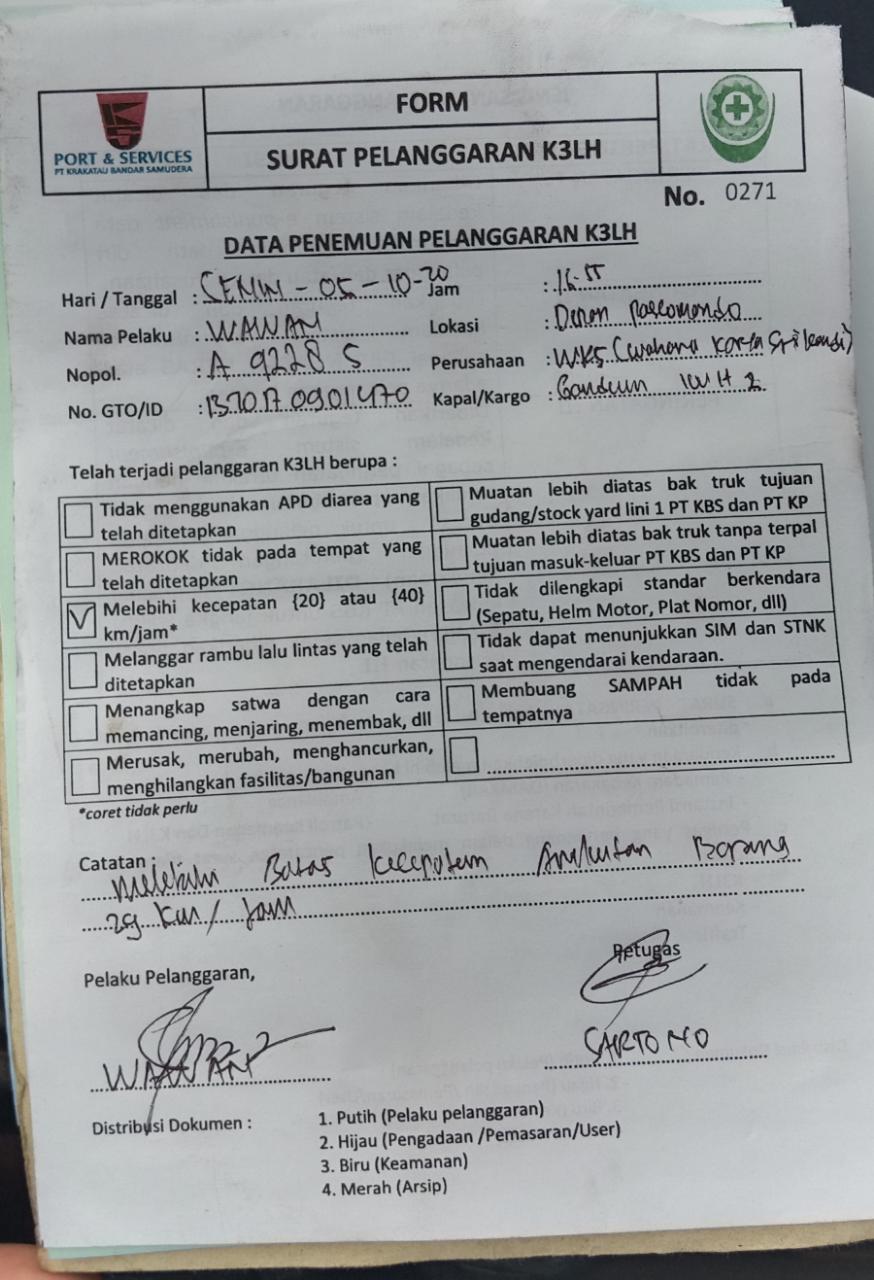 PORT & SERVICES
PT KRAKATAU BANDAR SAMUDERA
FORM
SURAT PELANGGARAN K3LH
No. 0271
DATA PENEMUAN PELANGGARAN K3LH
Hari / Tanggal : SENIN - 05 - 10-20 Jam : 16.55
Nama Pelaku : WAWAN Lokasi : Depan
Nopol. : A 9228 S Perusahaan : WKS (wahana karya
No. GTO/ID : Kapal/Kargo :
Telah terjadi pelanggaran K3LH berupa :
Tidak menggunakan APD diarea yang
telah ditetapkan
Muatan lebih diatas bak truk tujuan
gudang/stock yard lini 1 PT KBS dan PT KP
MEROKOK tidak pada tempat yang
telah ditetapkan
Muatan lebih diatas bak truk tanpa terpal
tujuan masuk-keluar PT KBS dan PT KP
Melebihi kecepatan {20} atau {40}
km/jam*
Tidak dilengkapi standar berkendara
(Sepatu, Helm Motor, Plat Nomor, dll)
Melanggar rambu lalu lintas yang telah
ditetapkan
Tidak dapat menunjukkan SIM dan STNK
saat mengendarai kendaraan.
Menangkap satwa dengan cara
memancing, menjaring, menembak, dll
Membuang SAMPAH tidak pada
tempatnya
Merusak, merubah, menghancurkan,
menghilangkan fasilitas/bangunan
*coret tidak perlu
Catatan : Melebihi Batas kecepatan Angkutan Barang
29 km/jam
Pelaku Pelanggaran, Petugas
WAWAN SARTONO
Distribusi Dokumen : 1. Putih (Pelaku pelanggaran)
2. Hijau (Pengadaan /Pemasaran/User)
3. Biru (Keamanan)
4. Merah (Arsip)